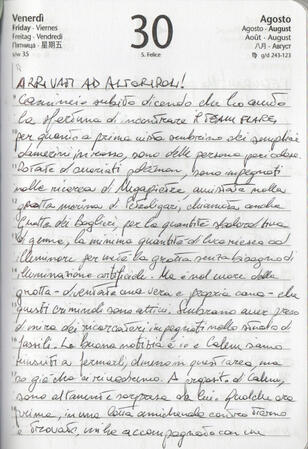 Venerdì
Friday - Viernes
Freitag - Vendredi
Пятница - 星期五
s/w 35
30
S. Felice
Agosto
Agosto - August
Août - August
八月 - Август
g/d 243-123
ARRIVATI AD ALTORIPOLI!
Comincio subito dicendo che ho avuto
la sfortuna di incontrare il TEAM FLARE,
per quanto a prima vista sembrino dei semplici
damerini in rosso, sono delle persone pericolose.
Dotate di svariati pokémon, sono impegnati
nella ricerca di Megapietre, avvistate nella
grotta marina di Petroglifari, chiamata anche
Grotta dei Bagliori, per la quantità
gemme, la minima quantità di luce riesce ad
illuminare per intero la grotta senza bisogno di
illuminazione artificiale. Ma è nel cuore della
grotta - diventata una vera e propria cava - che
questi criminali sono attivi. Sembrano aver preso
di mira dei ricercatori impegnati nello studio di
fossili. La buona notizia è: io e Calem siamo
riusciti a fermarli, almeno in quest'area, ma
so già che ci rivedremo. A proposito di Calem,
sono altamente sorpresa da lui. Qualche ora
prima, in una lotta amichevole contro Tierno
e Trovato, mi ha accompagnato con un